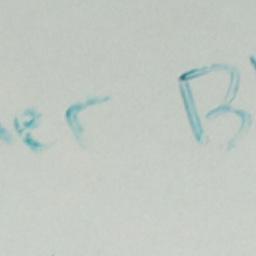 er B